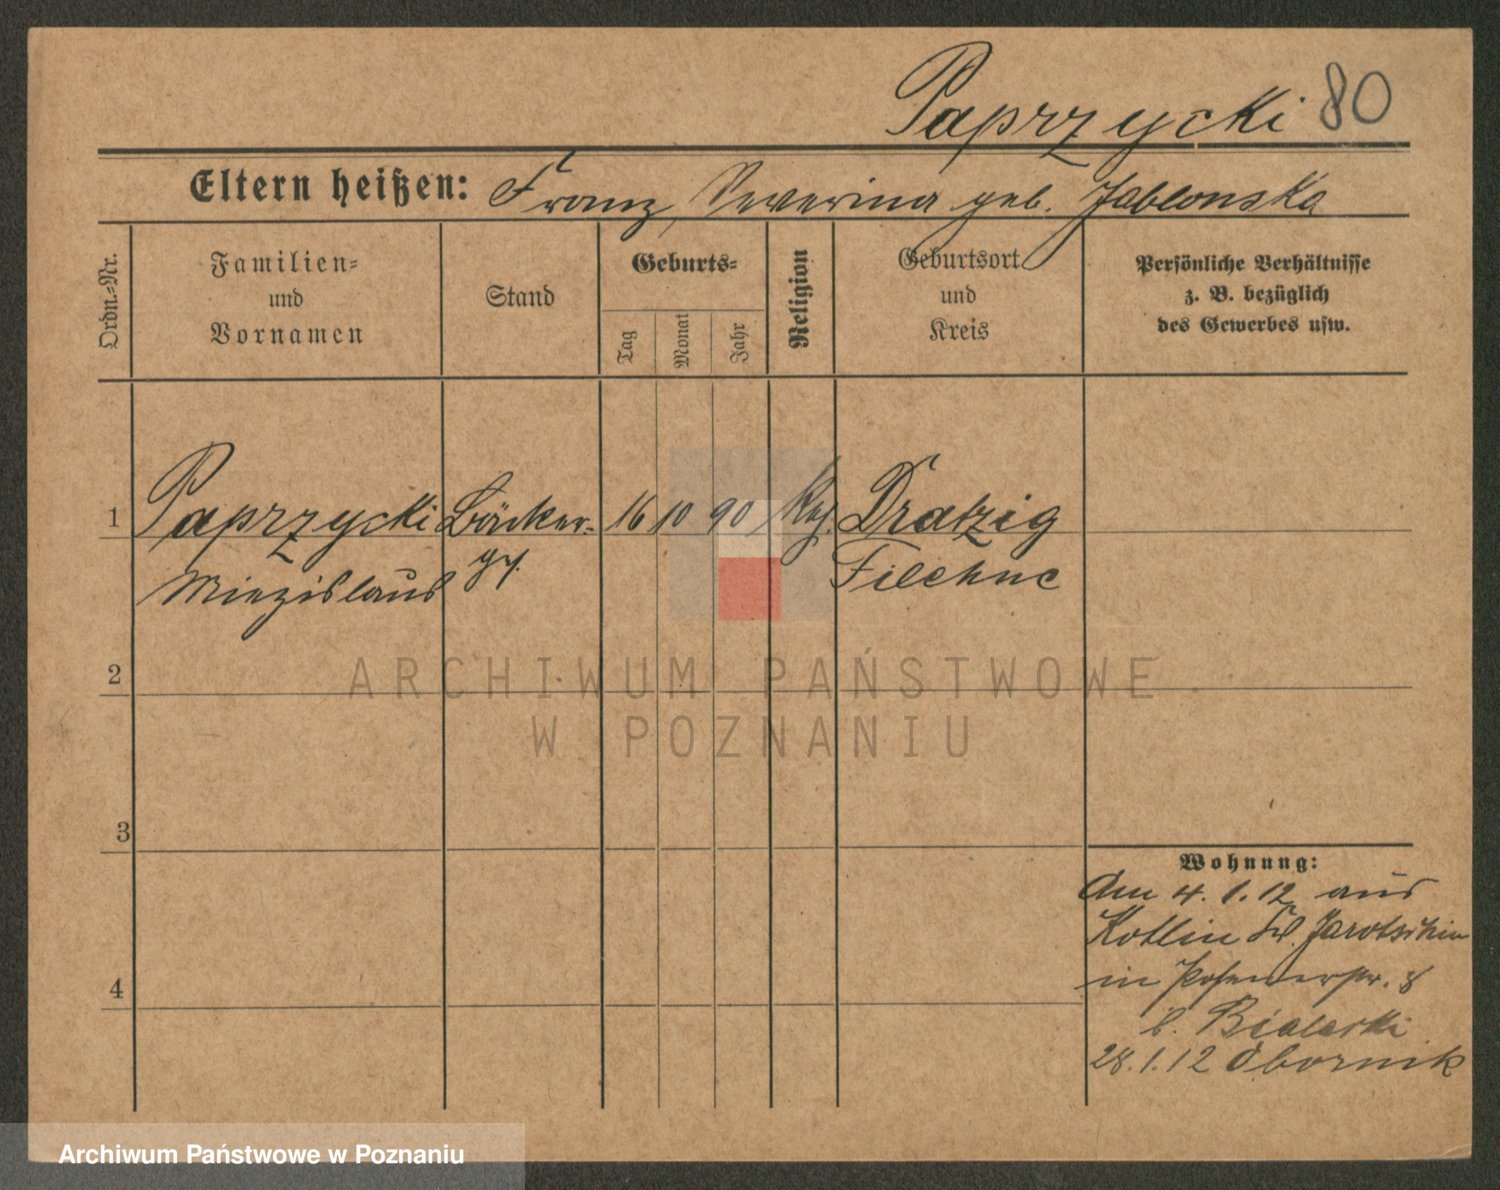 Paprzycki 80
Eltern heißen: Franz, Severina geb. Jablonska
Ordn.-Nr.
Familien-
und
Vornamen
Stand
Geburts-
Tag
Monat
Jahr
Religion
Geburtsort
und
Kreis
Persönliche Verhältnisse
z. B. bezüglich
des Gewerbes usw.
1 Paprzycki Bäcker- 16 10 90 Kath. Dratzig
Miezislaus gs. Filehne
2
3
4
Wohnung:
Am 4. 1. 12 aus
Kotlin Kr. Jarotschin
in Posenerstr. 8
b. Bialecki
28. 1. 12 Obornik
ARCHIWUM PAŃSTWOWE
W POZNANIU
Archiwum Państwowe w Poznaniu